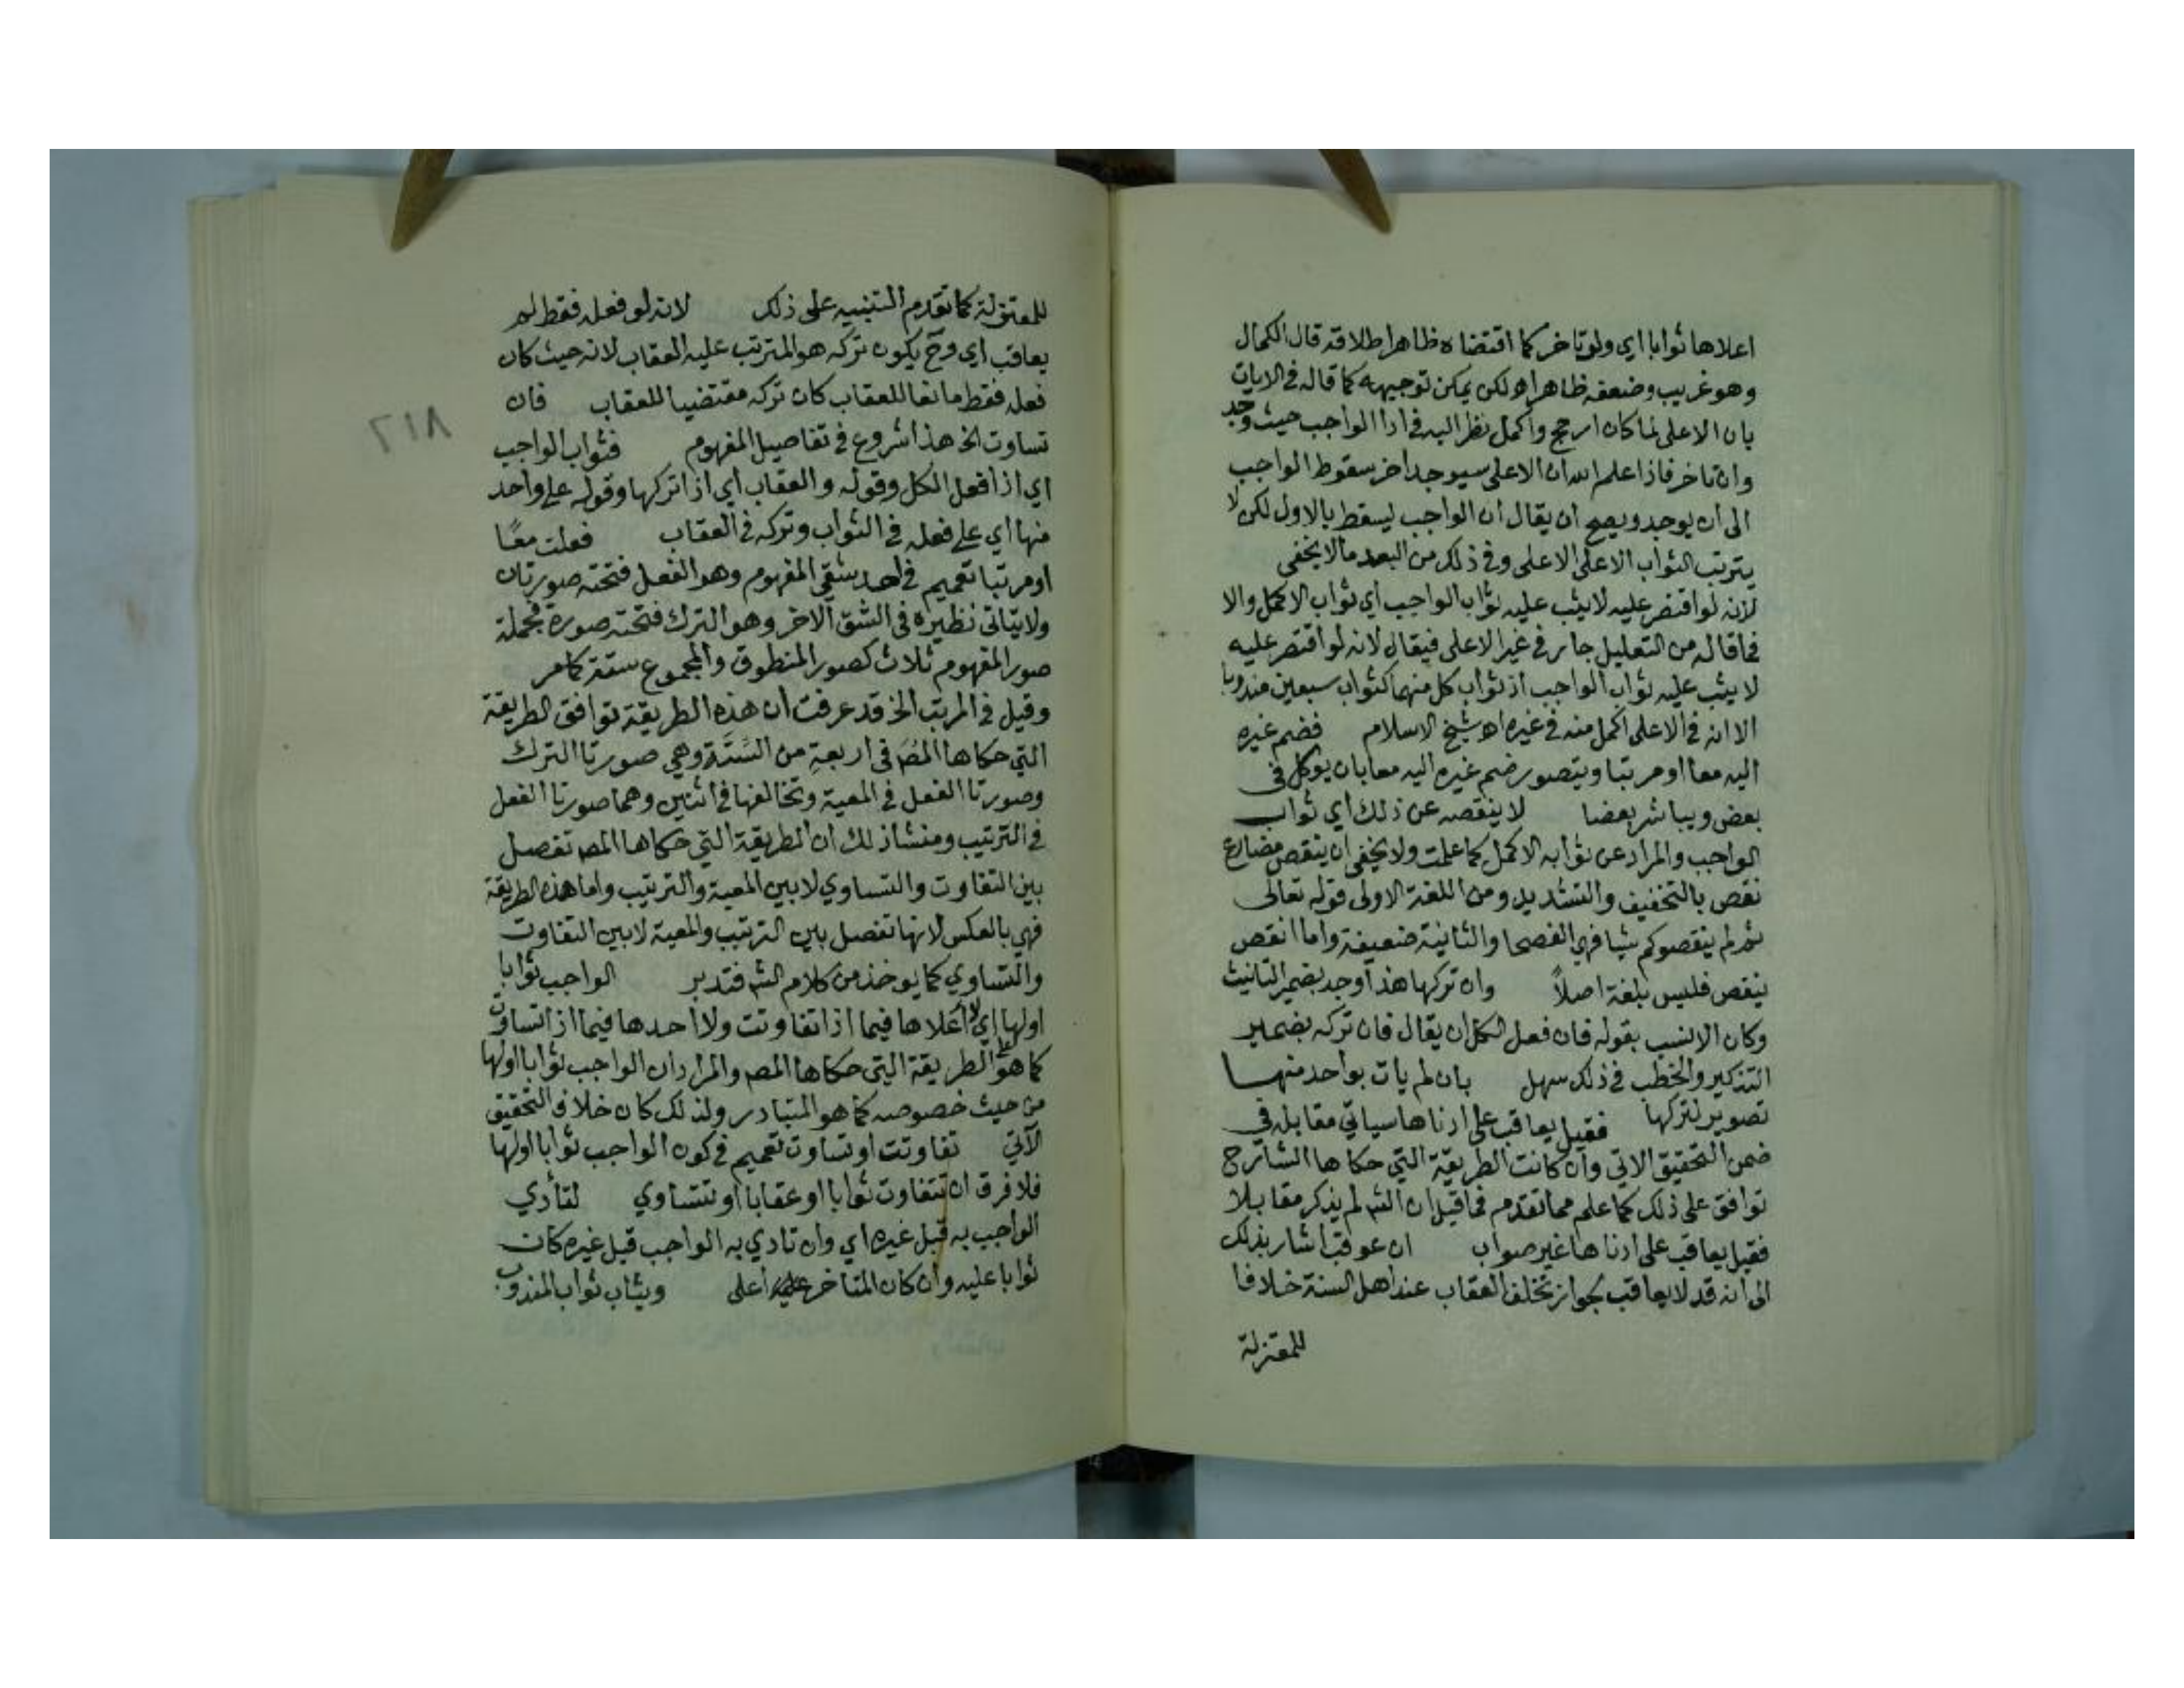 اعلاها ثوابا اي ولو تاخر كما اقتضاه ظاهر اطلاقه قال الكمال
وهو غريب وضعفه ظاهر اه لكن يمكن توجيهه كما قاله في الايات
بان الاعلى لما كان ارجح واكمل نظر اليه في ادا الواجب حيث وجد
وان تاخر فاذا علم الله ان الاعلى سيوجد اخر سقوط الواجب
الى ان يوجد ويصح ان يقال ان الواجب ليسقط بالاول لكن لا
يترتب الثواب الاعلى الا على وفي ذلك من البعد ما لا يخفى
لانه لو اقتصر عليه لايثب عليه ثواب الواجب اي ثواب الاكمل والا
فما قاله من التعليل جار في غير الاعلى فيقال لانه لو اقتصر عليه
لا يثب عليه ثواب الواجب اذ ثواب كل منهما كثواب سبعين مندوبا
الا انه في الاعلى اكمل منه في غيره اه شيخ الاسلام فضم غيره
اليه معا او مرتبا ويتصور ضم غيره اليه معا بان يوكل في
بعض ويباشر بعضا لا ينقصه عن ذلك اي ثواب
الواجب والمراد عن ثوابه الاكمل كما علمت ولا يخفى ان ينقص مضارع
نقص بالتخفيف والتشديد ومن اللغة الاولى قوله تعالى
ثم لم ينقصوكم شيا فهي الفصحا والثانية ضعيفة واما انقص
ينقص فليس بلغة اصلاً وان تركها هذا وجد بضمير التانيث
وكان الانسب بقوله فان فعل الكل ان يقال فان تركه بضمير
التذكير والخطب في ذلك سهل بان لم يات بواحد منها
تصوير لتركها فقيل يعاقب على ادناها سياتي مقابله في
ضمن التحقيق الاتي وان كانت الطريقة التي حكاها الشارح
توافق على ذلك كما علم مما تقدم فما قيل ان الش لم يذكر مقابلا
فقيل يعاقب على ادناها غير صواب ان عوقب اشار بذلك
الى انه قد لا يعاقب لجواز تخلف العقاب عند اهل السنة خلافا
للمعتزلة
للمعتزلة كما تقدم التنبيه على ذلك لانه لو فعله فقط لم
يعاقب اي وح يكون تركه هو المترتب عليه العقاب لانه حيث كان
فعله فقط مانعا للعقاب كان تركه مقتضيا للعقاب فان
تساوت الخ هذا شروع في تفاصيل المفهوم فثواب الواجب
اي اذا فعل الكل وقوله والعقاب اي اذا تركها وقوله على واحد
منها اي على فعله في الثواب وتركه في العقاب فعلت معًا
او مرتبا تعميم في احد شقي المفهوم وهو الفعل فتحته صورتان
ولا يتاتى نظيره في الشق الاخر وهو الترك فتحته صورة فجملة
صور المفهوم ثلاث كصور المنطوق والمجموع ستة كما مر
وقيل في المرتب الخ قد عرفت ان هذه الطريقة توافق الطريقة
التي حكاها المص في اربعة من الستة وهي صورتا الترك
وصورتا الفعل في المعية وتخالفها في اثنين وهما صورتا الفعل
في الترتيب ومنشا ذلك ان الطريقة التي حكاها المص تفصل
بين التفاوت والتساوي لا بين المعية والترتيب واما هذه الطريقة
فهي بالعكس لانها تفصل بين الترتيب والمعية لا بين التفاوت
والتساوي كما يوخذ من كلام الش فتدبر الواجب ثوابا
اولها اي لا اعلاها فيما اذا تفاوتت ولا احدها فيما اذا تساوت
كما هو على الطريقة التي حكاها المص والمراد ان الواجب ثوابا اولها
من حيث خصوصه كما هو المتبادر ولذلك كان خلاف التحقيق
الآتي تفاوتت او تساوت تعميم في كون الواجب ثوابا اولها
فلا فرق ان تتفاوت ثوابا او عقابا او تتساوي لتأدي
الواجب به قبل غيره اي وان تادي به الواجب قبل غيره كان
ثوابا عليه وان كان المتاخر اعلى ويثاب ثواب المندوب
٢١٨